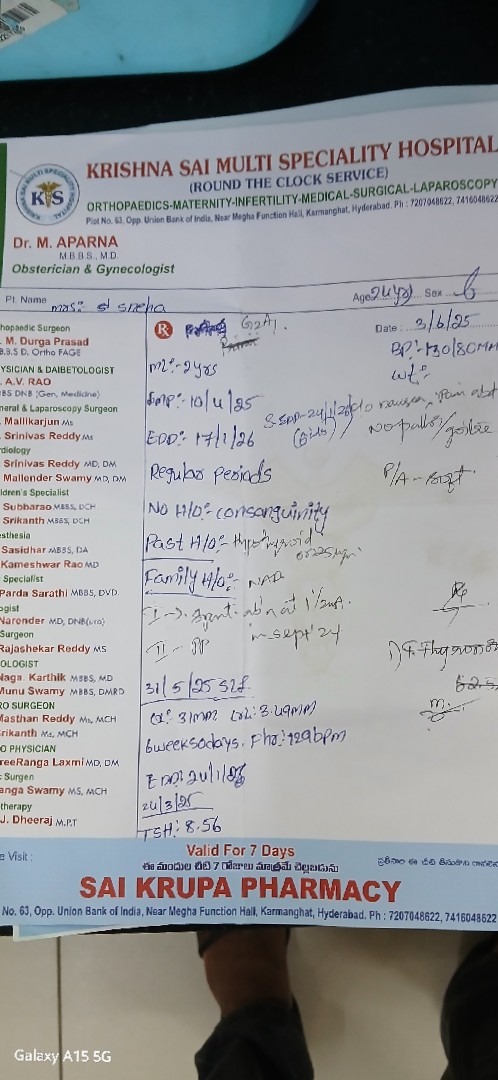 KRISHNA SAI MULTI SPECIALITY HOSPITAL
(ROUND THE CLOCK SERVICE)
ORTHOPAEDICS-MATERNITY-INFERTILITY-MEDICAL-SURGICAL-LAPAROSCOPY
Plot No. 63, Opp. Union Bank of India, Near Megha Function Hall, Karmanghat, Hyderabad. Ph : 7207048622, 7416048622
KRISHNA SAI MULTI SPECIALITY HOSPITAL
KS
Dr. M. APARNA
M.B.B.S., M.D.
Obsterician & Gynecologist
Pt. Name mrs: Sneha Age 24 yrs Sex
Rx G2A1. Date : 3/6/25
BP:-130/80MM
ML:- 2yrs Wt:-
LMP:- 10/4/25
EDD:- 17/1/26
c/o nausea, Pain abd
No pallor/
Regular periods P/A - soft
No H/O:- consanguinity
Past H/O:- thyroid
Family H/O:- NAD
I → abn at 1½mA.
in sept '24
II - PP
31/5/25
31MM CRL: 3.49MM
6weeks0days. Fhr:129bpm
EDD:24/1/26
24/3/25
TSH: 8.56
hopaedic Surgeon
M. Durga Prasad
B.B.S D. Ortho FAGE
YSICIAN & DAIBETOLOGIST
A.V. RAO
BBS DNB (Gen, Medicine)
neral & Laparoscopy Surgeon
Mallikarjun Ms
Srinivas Reddy Ms
rdiology
Srinivas Reddy MD, DM
Mallender Swamy MD, DM
ldren's Specialist
Subbarao MBBS, DCH
Srikanth MBBS, DCH
sthesia
Sasidhar MBBS, DA
Kameshwar Rao MD
Specialist
Parda Sarathi MBBS, DVD.
ogist
Narender MD, DNB(uro)
Surgeon
Rajashekar Reddy MS
OLOGIST
Naga. Karthik MBBS, MD
Munu Swamy MBBS, DMRD
RO SURGEON
Masthan Reddy Ms, MCH
rikanth Ms, MCH
O PHYSICIAN
reeRanga Laxmi MD, DM
c Surgen
anga Swamy MS, MCH
therapy
J. Dheeraj M.P.T
e Visit :
Valid For 7 Days
ఈ మందుల చీటి 7 రోజులు మాత్రమే చెల్లబడును
SAI KRUPA PHARMACY
No. 63, Opp. Union Bank of India, Near Megha Function Hall, Karmanghat, Hyderabad. Ph : 7207048622, 7416048622
Galaxy A15 5G